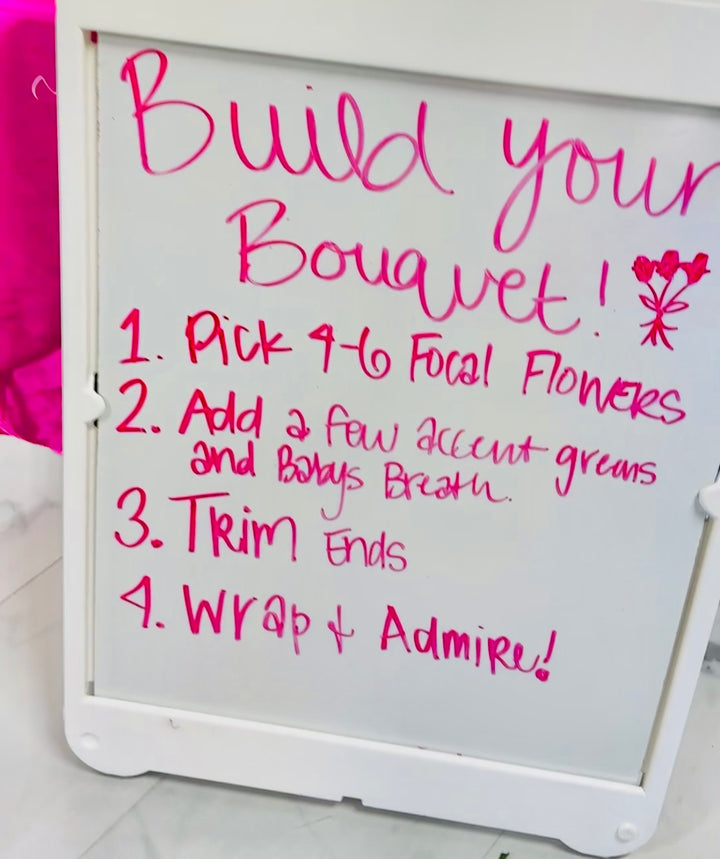 Build your
Bouquet!
1. Pick 4-6 Focal Flowers
2. Add a few accent greens
and Babys Breath.
3. Trim Ends
4. Wrap & Admire!